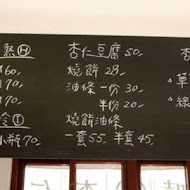 熱(H)
60,
70,
70,
冷(I)
瓶70,
杏仁豆腐50,
燒餅28,
油條一份30,
半份20,
燒餅油條
一套55,半套45,
杏
草
綠